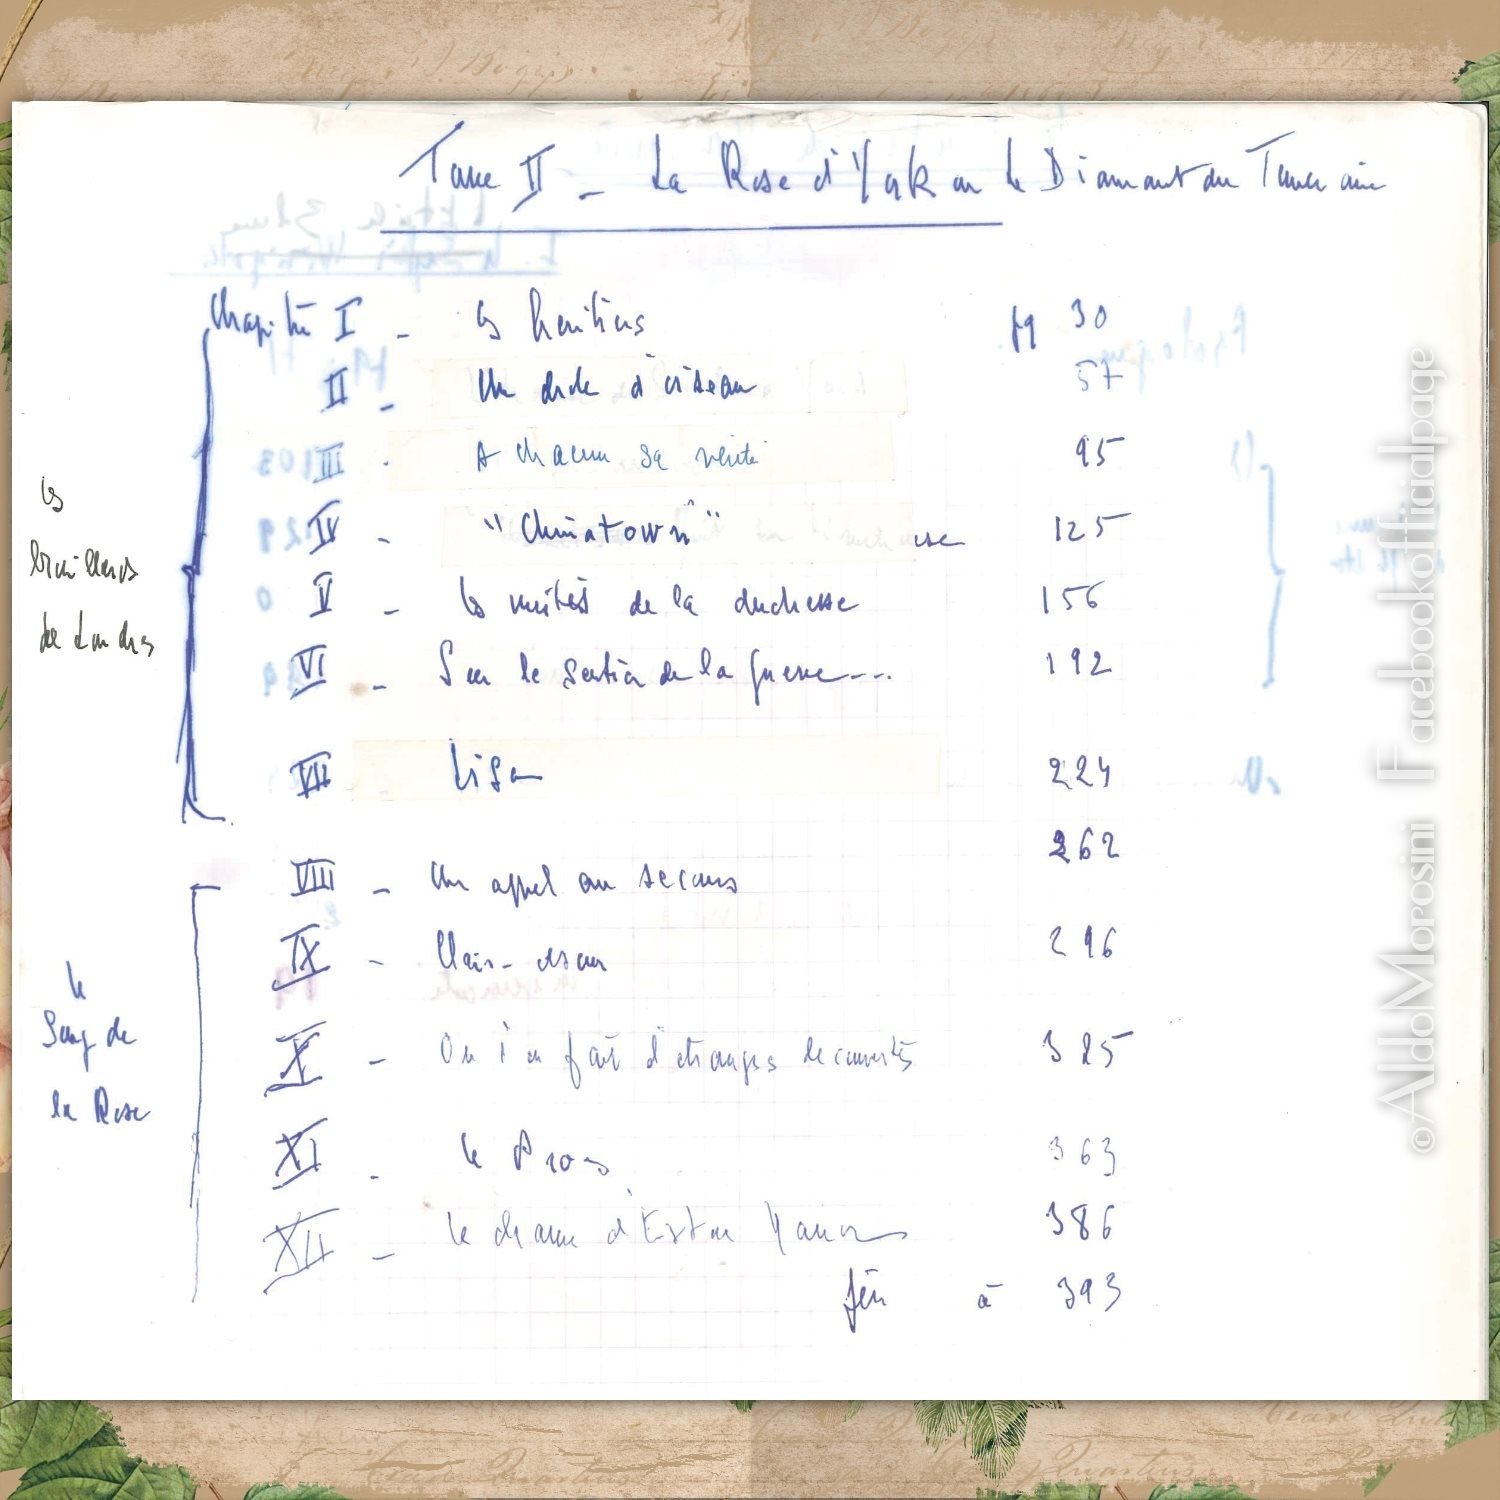 Tome II - La Rose d'York ou le Diamant du Téméraire
Chapitre I - Les héritiers pg 30
II - Un drôle d'oiseau 57
III - A chacun sa vérité 95
IV - "Chinatown" 125
V - Les de la duchesse 156
VI - Sur le sentier de la guerre... 192
VII Lisa 224
VIII - Un appel au secours 262
IX - Clair-obscur 296
X - Où l'on fait d'étranges découvertes 325
XI - Le 363
XII - Le drame d'Exton Manor 386
fin à 393
Les
brouillards
de Londres
Le
Sang de
la Rose
©AldoMorosini Facebookofficialpage